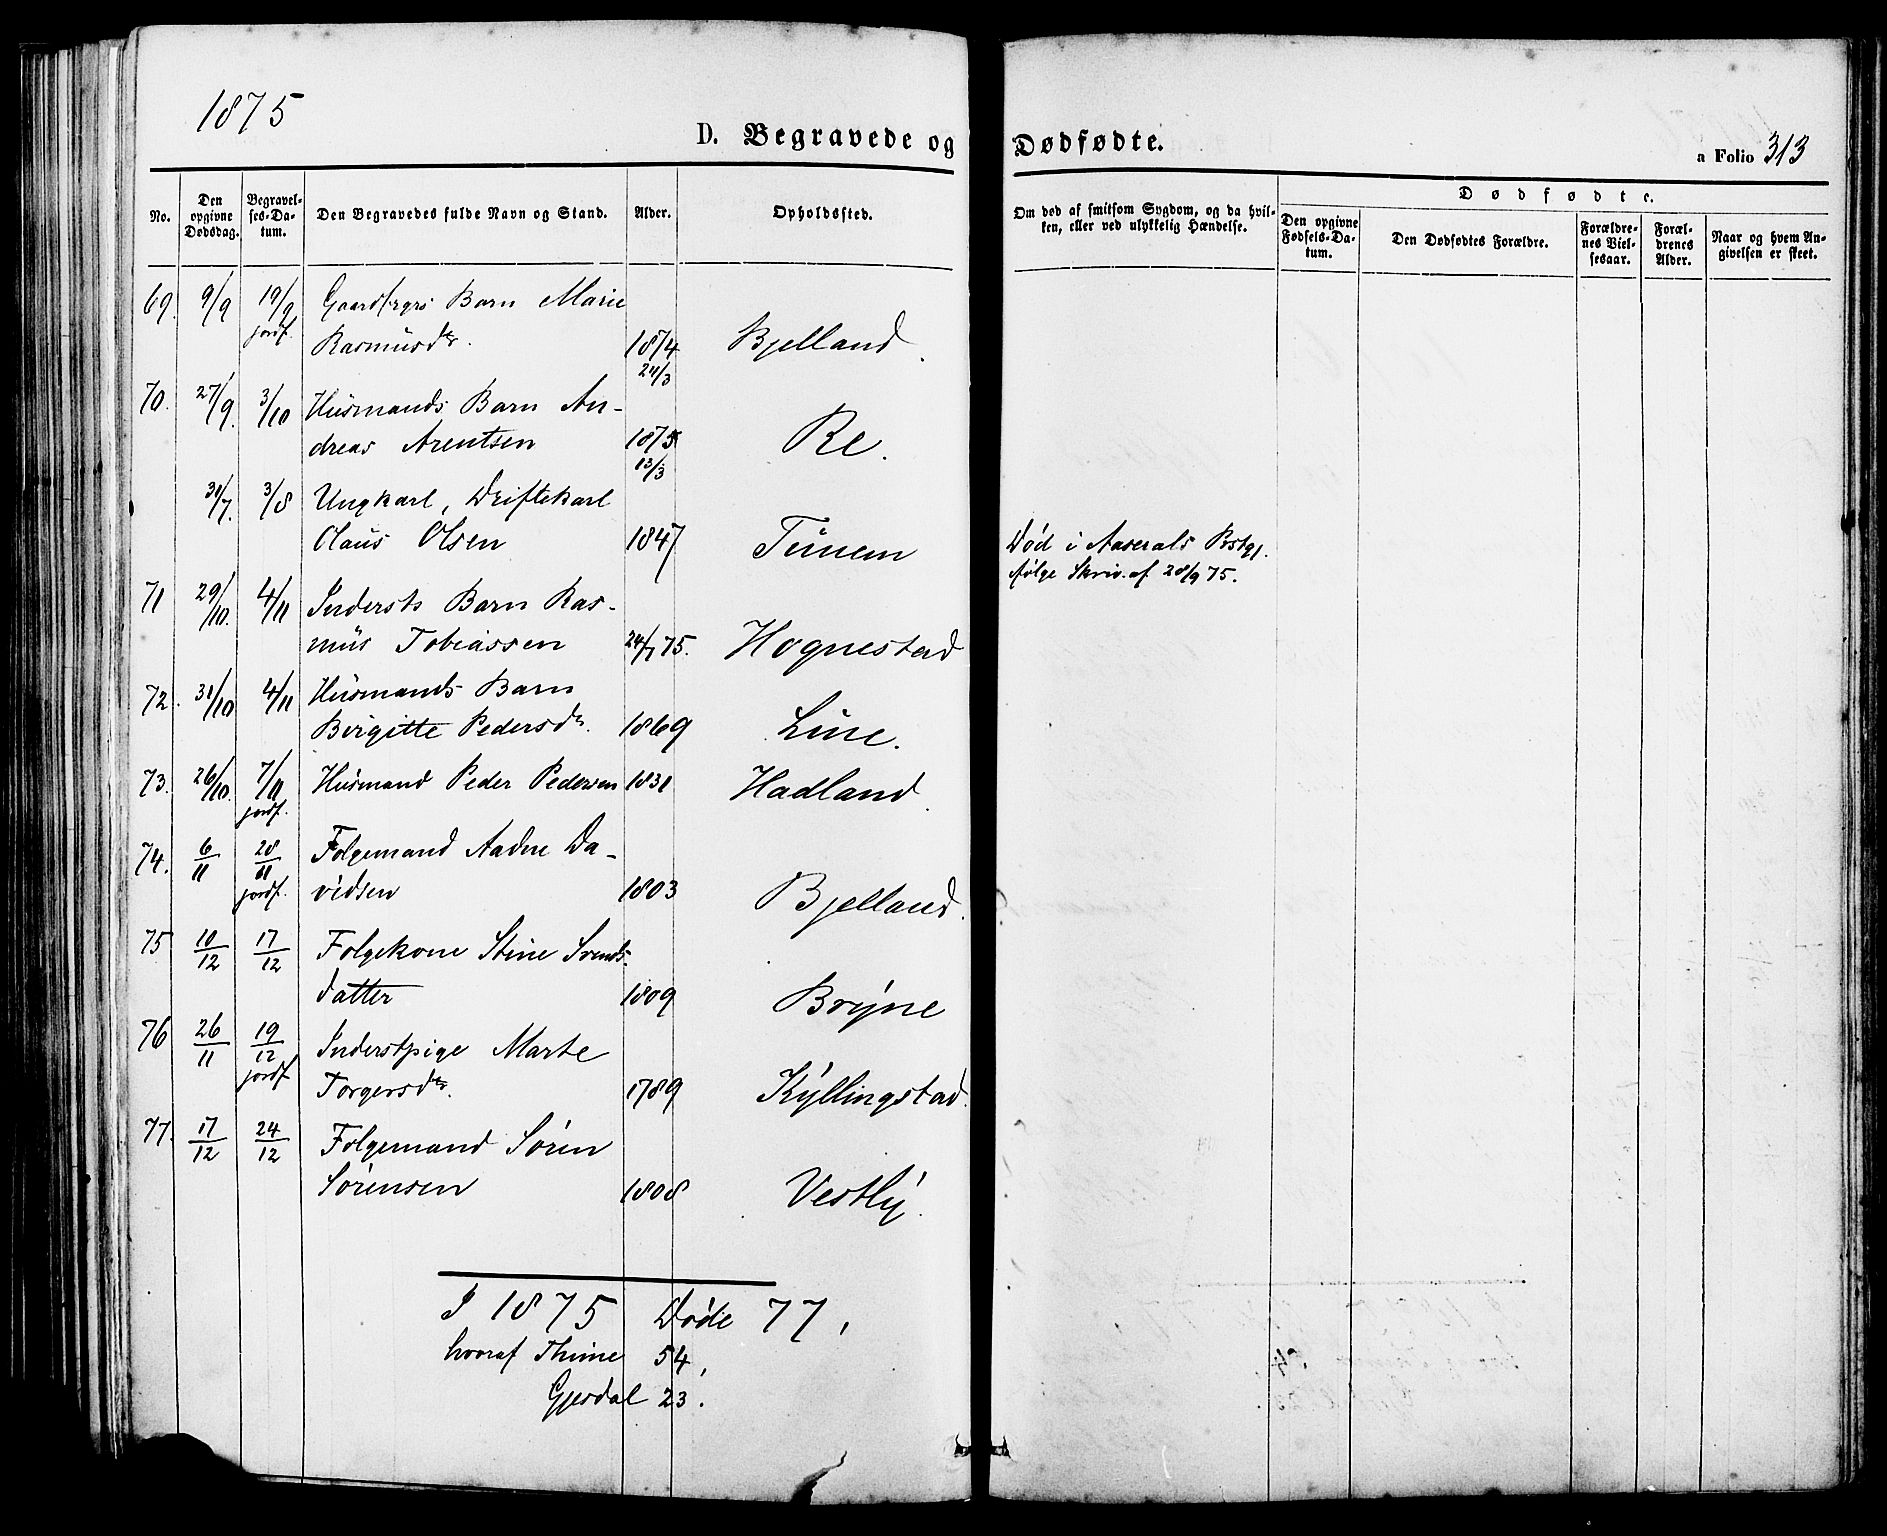 1875
D. Begravede og Dødfødte.
a Folio 313
No.
Den opgivne Dødsdag.
Begravelses-Datum.
Den Begravedes fulde Navn og Stand.
Alder.
Opholdssted.
Om død af smitsom Sygdom, og da hvilken, eller ved ulykkelig Hændelse.
Dødfødte.
Den opgivne Fødsels-Datum.
Den Dødfødtes Forældre.
Forældrenes Vielsesaar.
Forældrenes Alder.
Naar og hvem Angivelsen er skeet.
69. 9/9 19/9 Barn Marie
jordf.
Rasmusdtr. 1874 Bjelland.
24/3
70. 27/9. 3/10 Husmands Barn An-
dreas Arentsen 1875 Re.
13/3
31/7. 3/8 Ungkarl, Driftekarl
Claus Olsen 1847 Tunem Død i Aaserals Pstgj.
ifølge Skriv. af 28/9 75.
71 29/10. 4/11 Indersts Barn Ras-
mus Tobiassen 24/7 75. Hognestad
72. 31/10 4/11 Husmands Barn
Birgitte Pedersdr. 1869 Line.
73. 26/10. 7/11 Husmand Peder Pedersen 1831 Hadland.
jordf.
74. 6/11 28/11 Folgemand Aadne Da-
jordf. vidsen 1803 Bjelland.
75 10/12 17/12 Folgekone Stine Svends-
datter 1809 Bryne
76 26/11 19/12 Inderstpige Marte
jordf
Torgersdtr. 1789 Kyllingstad.
77. 17/12 24/12 Folgemand Sören
Sörensen 1808 Vestly.
I 1875 Døde 77,
hvoraf Thime 54,
Gjesdal 23.